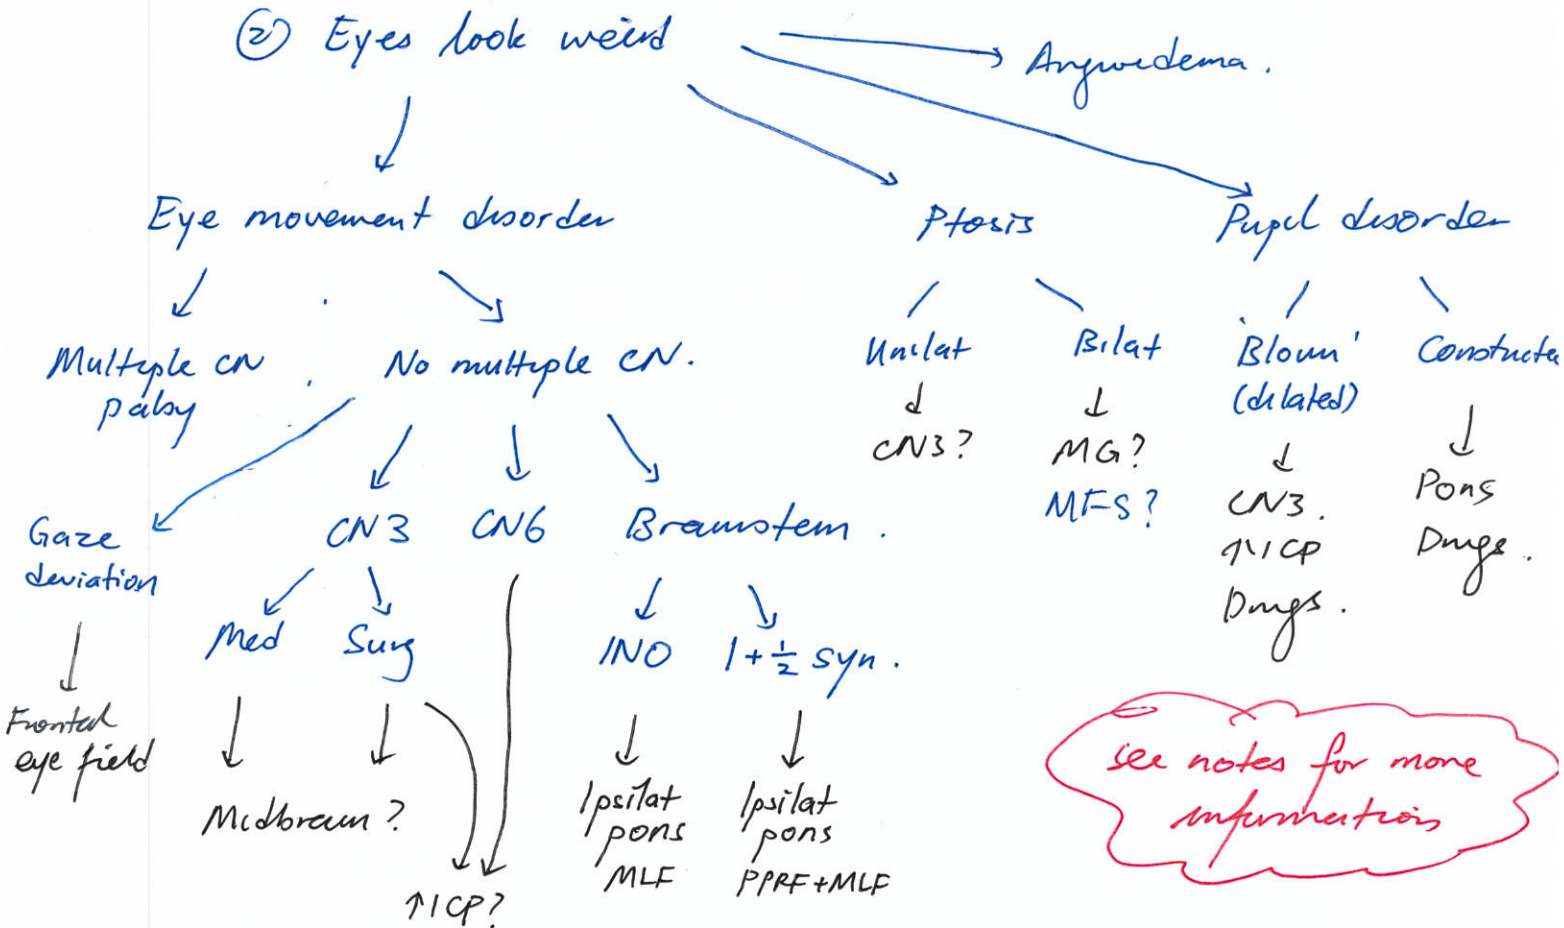 ② Eyes look weird
Angioedema.
Eye movement disorder
Ptosis
Pupil disorder
Multiple CN
palsy
No multiple CN.
Unilat
Bilat
'Blown'
(dilated)
Constricte
CN3?
MG?
MFS?
CN3.
↑ICP
Drugs.
Pons
Drugs.
Gaze
deviation
CN3
CN6
Brainstem.
Med
Surg
INO
1+½ syn.
Frontal
eye field
Midbrain?
↑ICP?
Ipsilat
pons
MLF
Ipsilat
pons
PPRF+MLF
see notes for more
information